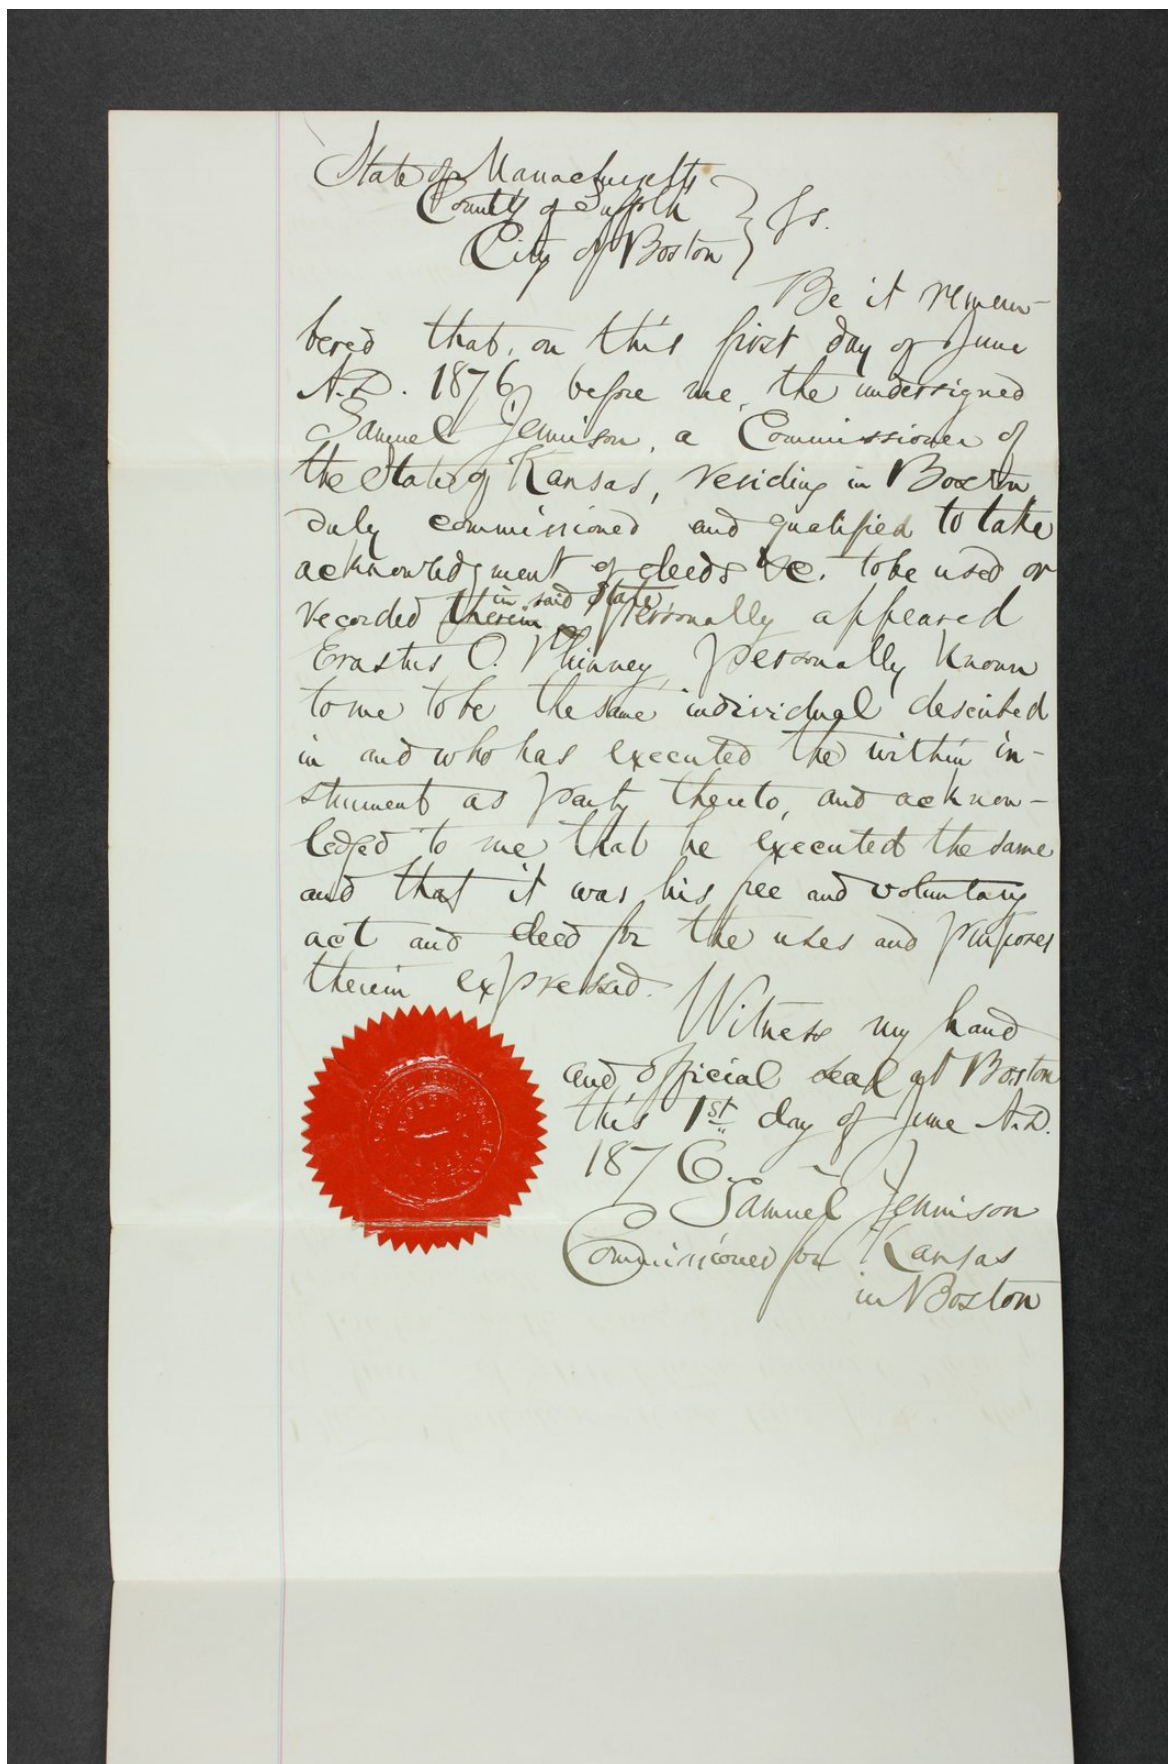 State of Massachusetts
County of Suffolk } Ss.
City of Boston
Be it remem-
bered that, on this first day of June
A.D. 1876, before me, the undersigned
Samuel Jennison, a Commissioner of
the State of Kansas, residing in Boston
duly commissioned and qualified to take
acknowledgment of deeds &c. to be used or
in said State
recorded therein, personally appeared
Erastus O. Phinney, personally known
to me to be the same individual described
in and who has executed the within in-
strument as party thereto, and acknow-
ledged to me that he executed the same
and that it was his free and voluntary
act and deed for the uses and purposes
therein expressed.
Witness my hand
and official seal at Boston
this 1st day of June A.D.
1876.
Samuel Jennison
Commissioner for Kansas
in Boston